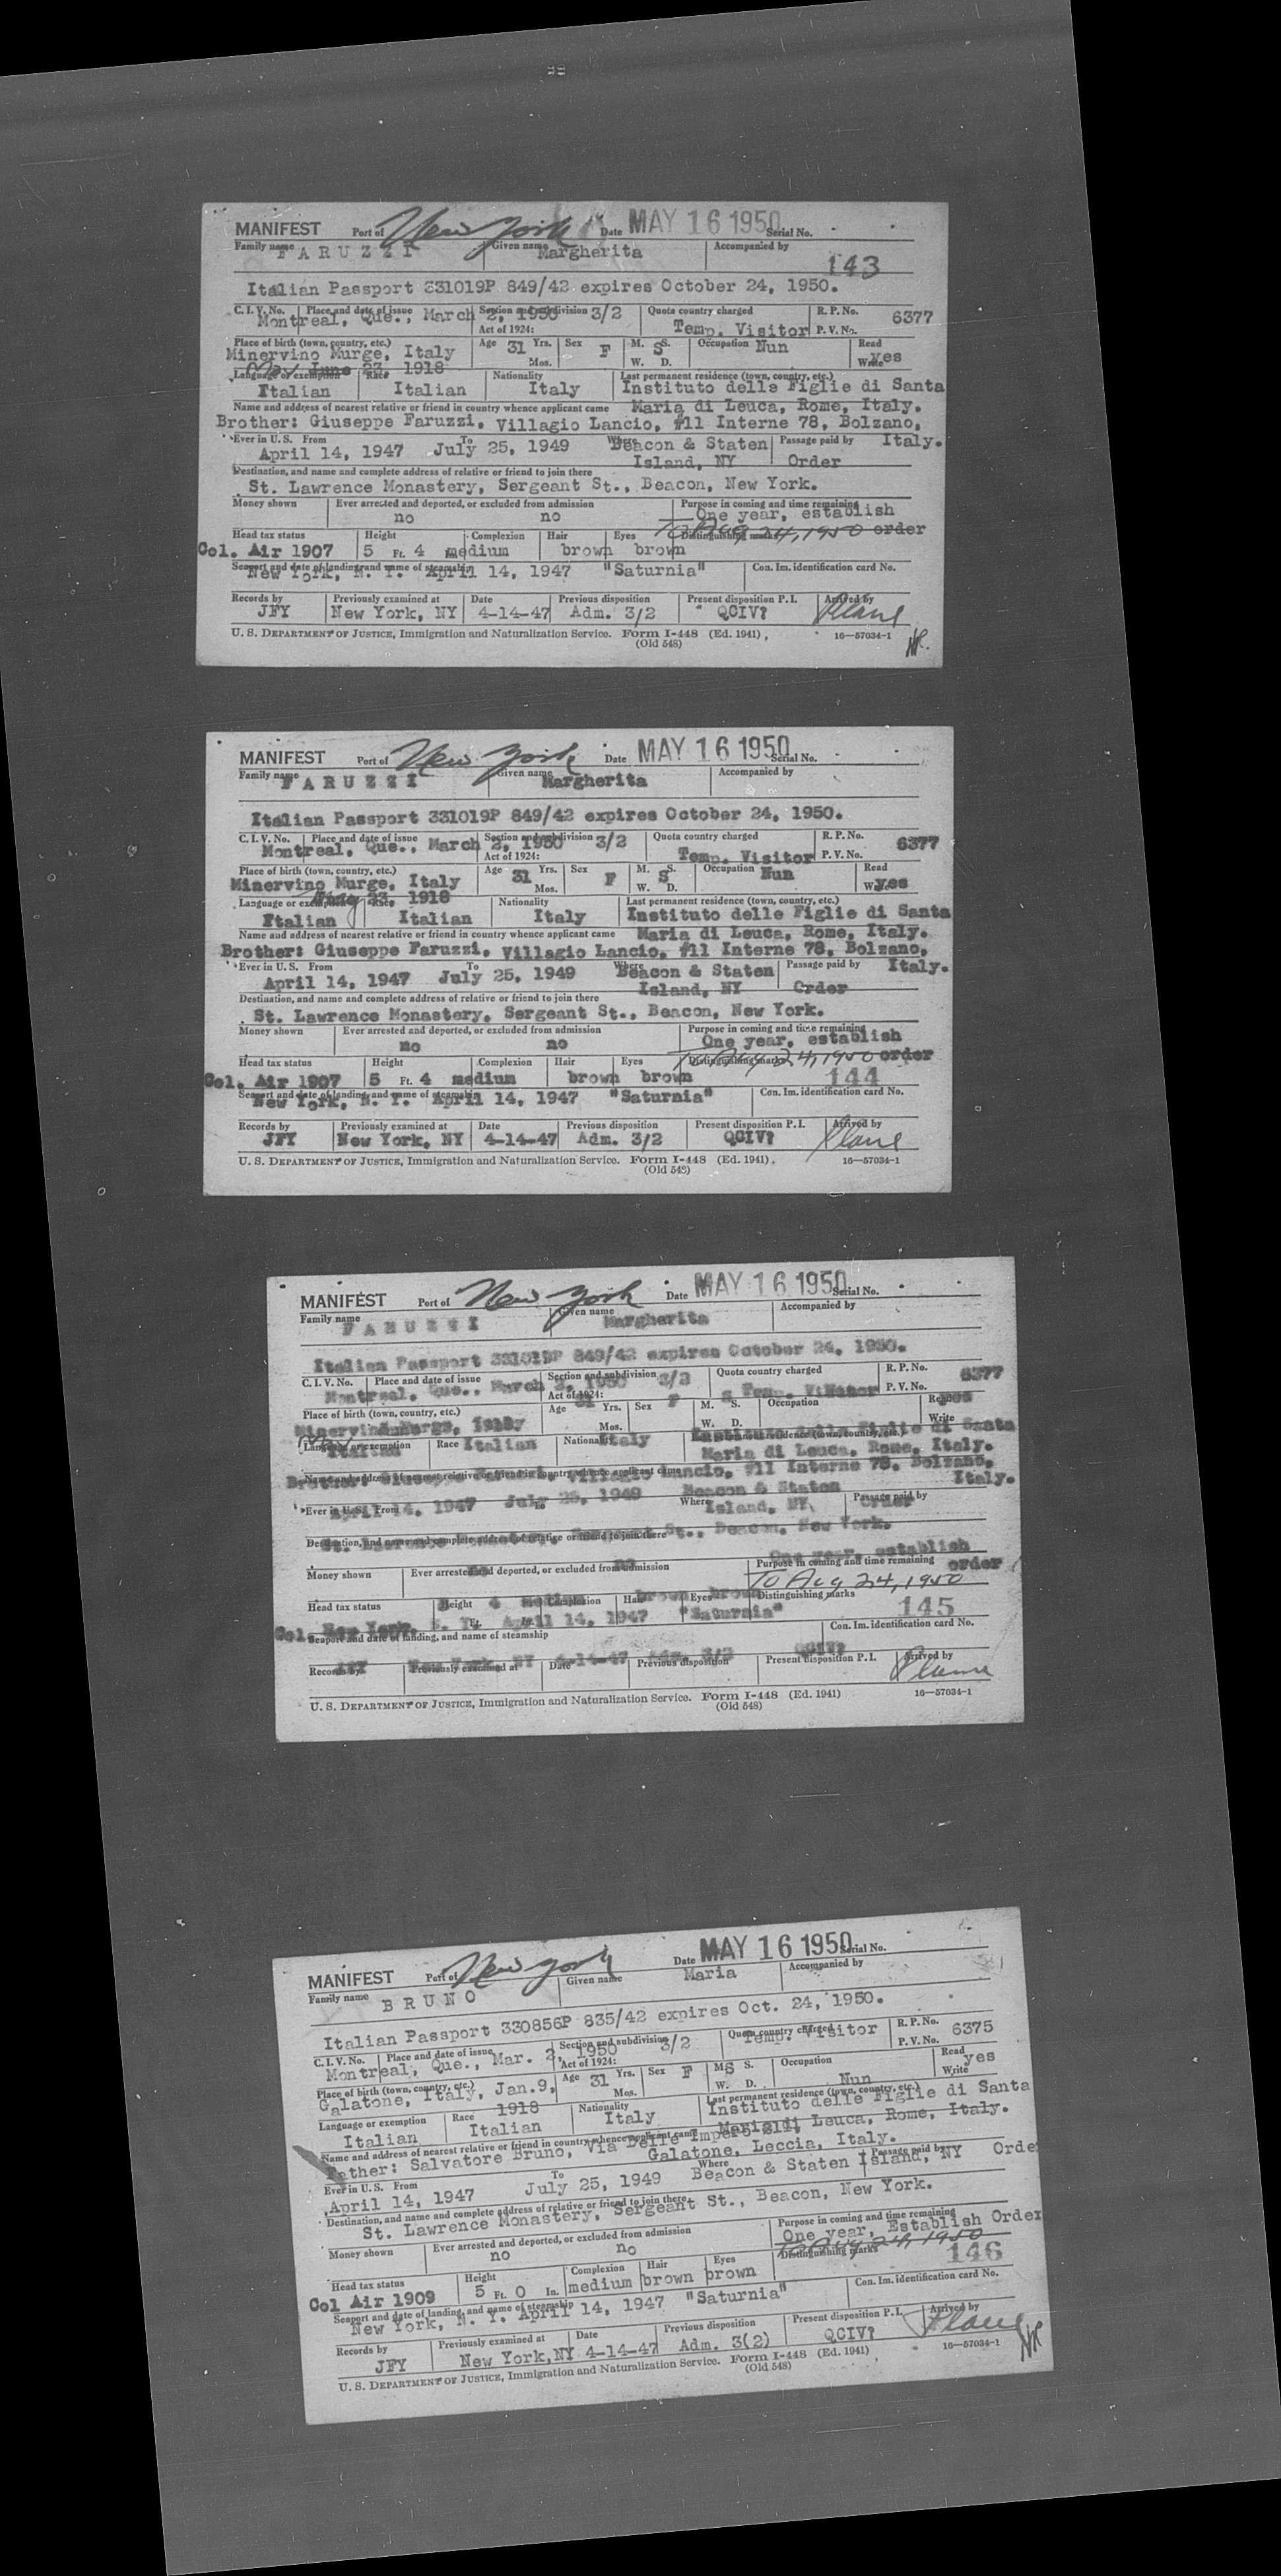 MANIFEST Port of New York Date MAY 16 1950 Serial No.
Family name FARUZZI Given name Margherita Accompanied by
143
Italian Passport 331019P 849/42 expires October 24, 1950.
C. I. V. No. Place and date of issue Section and subdivision 3/2 Quota country charged R. P. No. 6377
Montreal, Que., March 2, 1950 Act of 1924: Temp. Visitor P. V. No.
Place of birth (town, country, etc.) Age 31 Yrs. Sex F M. S. S Occupation Nun Read
Minervino Murge, Italy Mos. W. D. Write yes
May June 23, 1918
Language or exemption Race Nationality Last permanent residence (town, country, etc.)
Italian Italian Italy Instituto delle Figlie di Santa
Name and address of nearest relative or friend in country whence applicant came Maria di Leuca, Rome, Italy.
Brother: Giuseppe Faruzzi, Villagio Lancio, #11 Interne 78, Bolzano,
Ever in U. S. From To Where Passage paid by Italy.
April 14, 1947 July 25, 1949 Beacon & Staten
Island, NY Order
Destination, and name and complete address of relative or friend to join there
St. Lawrence Monastery, Sergeant St., Beacon, New York.
Money shown Ever arrested and deported, or excluded from admission Purpose in coming and time remaining
no no One year, establish
To Aug 24, 1950 order
Head tax status Height Complexion Hair Eyes Distinguishing marks
Col. Air 1907 5 Ft. 4 medium brown brown
Seaport and date of landing, and name of steamship Con. Im. identification card No.
New York, N. Y. April 14, 1947 "Saturnia"
Records by Previously examined at Date Previous disposition Present disposition P. I. Arrived by
JFY New York, NY 4-14-47 Adm. 3/2 QCIV? Plane
U. S. DEPARTMENT OF JUSTICE, Immigration and Naturalization Service. Form I-448 (Ed. 1941) 16—57034-1
(Old 548)
MANIFEST Port of New York Date MAY 16 1950 Serial No.
Family name FARUZZI Given name Margherita Accompanied by
Italian Passport 331019P 849/42 expires October 24, 1950.
C. I. V. No. Place and date of issue Section and subdivision 3/2 Quota country charged R. P. No. 6377
Montreal, Que., March 2, 1950 Act of 1924: Temp. Visitor P. V. No.
Place of birth (town, country, etc.) Age 31 Yrs. Sex F M. S. S Occupation Nun Read
Minervino Murge, Italy Mos. W. D. Write yes
23, 1918
Language or exemption Race Nationality Last permanent residence (town, country, etc.)
Italian Italian Italy Instituto delle Figlie di Santa
Name and address of nearest relative or friend in country whence applicant came Maria di Leuca, Rome, Italy.
Brother: Giuseppe Faruzzi, Villagio Lancio, #11 Interne 78, Bolzano,
Ever in U. S. From To Where Passage paid by Italy.
April 14, 1947 July 25, 1949 Beacon & Staten
Island, NY Order
Destination, and name and complete address of relative or friend to join there
St. Lawrence Monastery, Sergeant St., Beacon, New York.
Money shown Ever arrested and deported, or excluded from admission Purpose in coming and time remaining
no no One year, establish
To Aug 24, 1950 order
Head tax status Height Complexion Hair Eyes Distinguishing marks
144
Col. Air 1907 5 Ft. 4 medium brown brown
Seaport and date of landing, and name of steamship Con. Im. identification card No.
New York, N. Y. April 14, 1947 "Saturnia"
Records by Previously examined at Date Previous disposition Present disposition P. I. Arrived by
JFY New York, NY 4-14-47 Adm. 3/2 QCIV? Plane
U. S. DEPARTMENT OF JUSTICE, Immigration and Naturalization Service. Form I-448 (Ed. 1941) 16—57034-1
(Old 548)
MANIFEST Port of New York Date MAY 16 1950 Serial No.
Family name FARUZZI Given name Margherita Accompanied by
Italian Passport 331019P 849/42 expires October 24, 1950.
C. I. V. No. Place and date of issue Section and subdivision 3/2 Quota country charged R. P. No. 6377
Montreal, Que., March 2, 1950 Act of 1924: Temp. Visitor P. V. No.
Place of birth (town, country, etc.) Age 31 Yrs. Sex F M. S. S Occupation Read yes
Minervino Murge, Italy Mos. W. D. Write
Instituto delle Figlie di Santa
Language or exemption Race Italian Nationality Italy Last permanent residence (town, country, etc.)
Italian Maria di Leuca, Rome, Italy.
Name and address of nearest relative or friend in country whence applicant came
Brother: Giuseppe Faruzzi, Villagio Lancio, #11 Interne 78, Bolzano,
Italy.
Ever in U. S. From April 14, 1947 To July 25, 1949 Where Beacon & Staten Island, NY Passage paid by Order
Destination, and name and complete address of relative or friend to join there
St., Beacon, New York.
One year, establish
Money shown Ever arrested and deported, or excluded from admission Purpose in coming and time remaining order
To Aug 24, 1950
Head tax status Height 4 medium Complexion Hair brown Eyes brown Distinguishing marks
145
Col. New York, N. Y. April 14, 1947 "Saturnia"
Seaport and date of landing, and name of steamship Con. Im. identification card No.
JFY New York, NY 4-14-47 Adm. 3/2 QCIV?
Records by Previously examined at Date Previous disposition Present disposition P. I. Arrived by
Plane
U. S. DEPARTMENT OF JUSTICE, Immigration and Naturalization Service. Form I-448 (Ed. 1941) 16—57034-1
(Old 548)
MANIFEST Port of New York Date MAY 16 1950 Serial No.
Family name BRUNO Given name Maria Accompanied by
Italian Passport 330856P 835/42 expires Oct. 24, 1950.
C. I. V. No. Place and date of issue Section and subdivision 3/2 Quota country charged R. P. No. 6375
Montreal, Que., Mar. 2, 1950 Act of 1924: Temp. Visitor P. V. No.
Place of birth (town, country, etc.) Age 31 Yrs. Sex F M. S. S Occupation Read
Galatone, Italy, Jan.9, Mos. W. D. Nun Write yes
1918
Language or exemption Race Nationality Last permanent residence (town, country, etc.)
Italian Italian Italy Instituto delle Figlie di Santa
Maria di Leuca, Rome, Italy.
Name and address of nearest relative or friend in country whence applicant came
Father: Salvatore Bruno, Via Delle Impero
Galatone, Leccia, Italy.
Ever in U. S. From To Where Passage paid by
April 14, 1947 July 25, 1949 Beacon & Staten Island, NY Orde
Destination, and name and complete address of relative or friend to join there
St. Lawrence Monastery, Sergeant St., Beacon, New York.
Money shown Ever arrested and deported, or excluded from admission Purpose in coming and time remaining
no no One year, Establish Order
To Aug 24, 1950
Head tax status Height Complexion Hair Eyes Distinguishing marks
146
Col Air 1909 5 Ft. 0 In. medium brown brown
Seaport and date of landing, and name of steamship Con. Im. identification card No.
New York, N. Y. April 14, 1947 "Saturnia"
Records by Previously examined at Date Previous disposition Present disposition P. I. Arrived by
JFY New York,NY 4-14-47 Adm. 3(2) QCIV? Plane
U. S. DEPARTMENT OF JUSTICE, Immigration and Naturalization Service. Form I-448 (Ed. 1941) 16—57034-1
(Old 548)